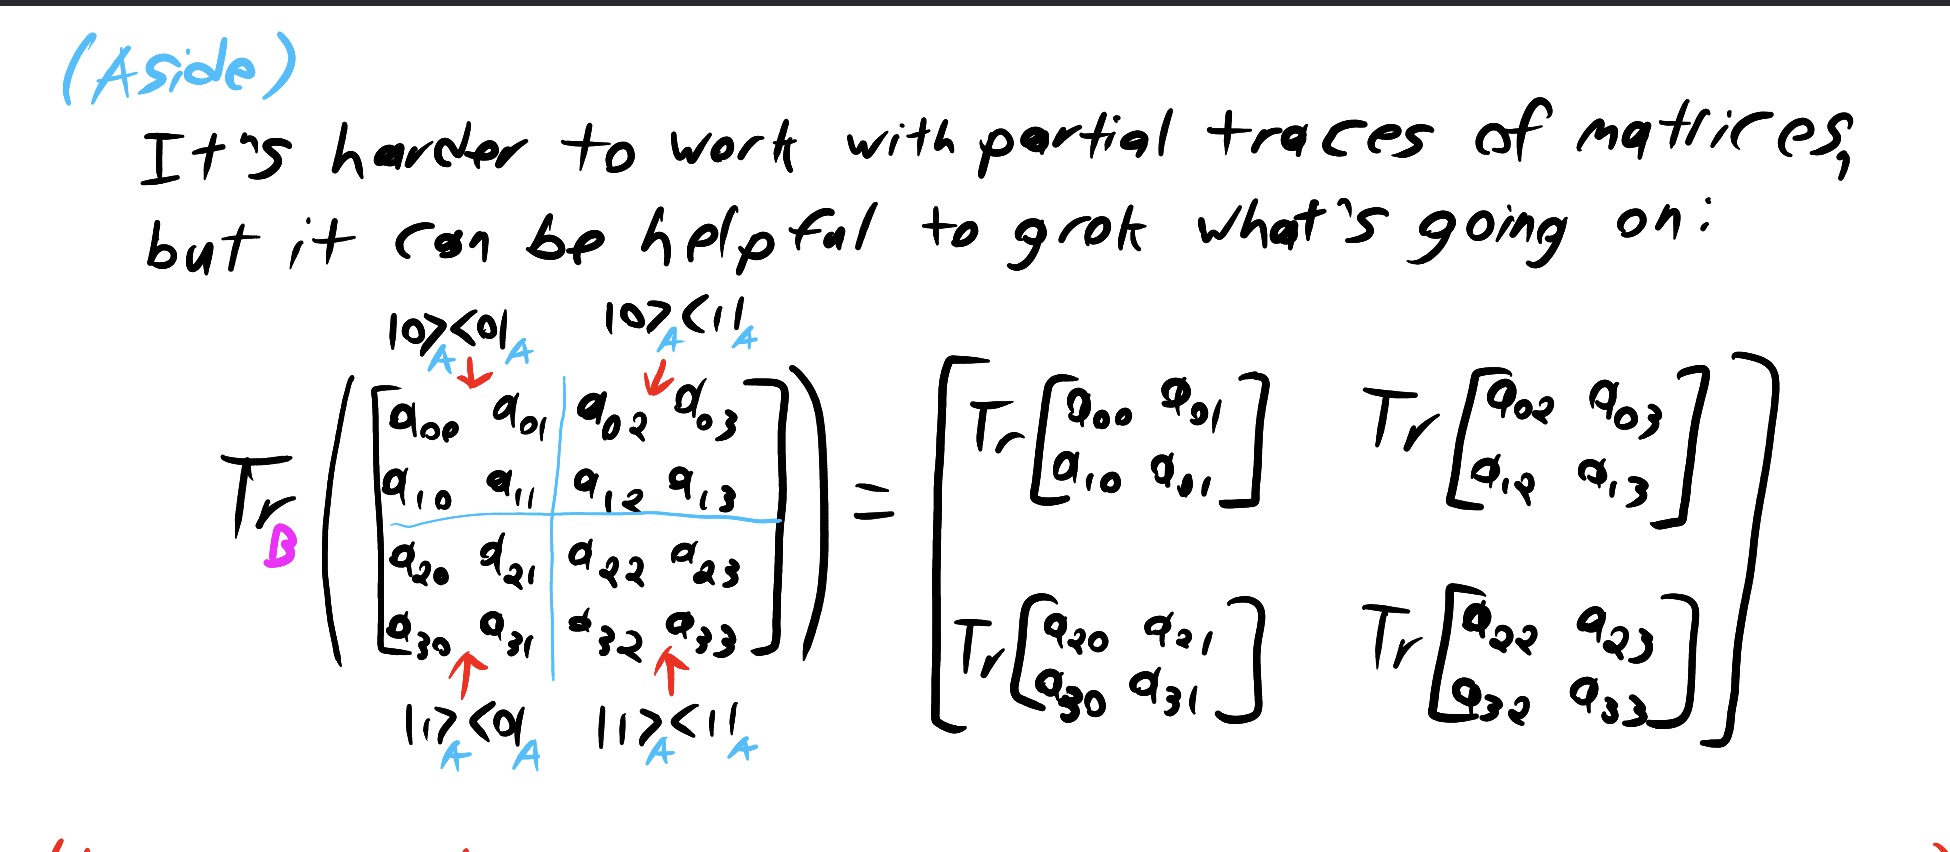 (Aside)
It's harder to work with partial traces of matrices,
but it can be helpful to grok what's going on:
|0⟩_A⟨0|_A |0⟩_A⟨1|_A
Tr_B ( [ a_00 a_01 a_02 a_03
a_10 a_11 a_12 a_13
a_20 a_21 a_22 a_23
a_30 a_31 a_32 a_33 ] ) = [ Tr [ a_00 a_01
a_10 a_11 ] Tr [ a_02 a_03
a_12 a_13 ]
Tr [ a_20 a_21
a_30 a_31 ] Tr [ a_22 a_23
a_32 a_33 ] ]
|1⟩_A⟨0|_A |1⟩_A⟨1|_A